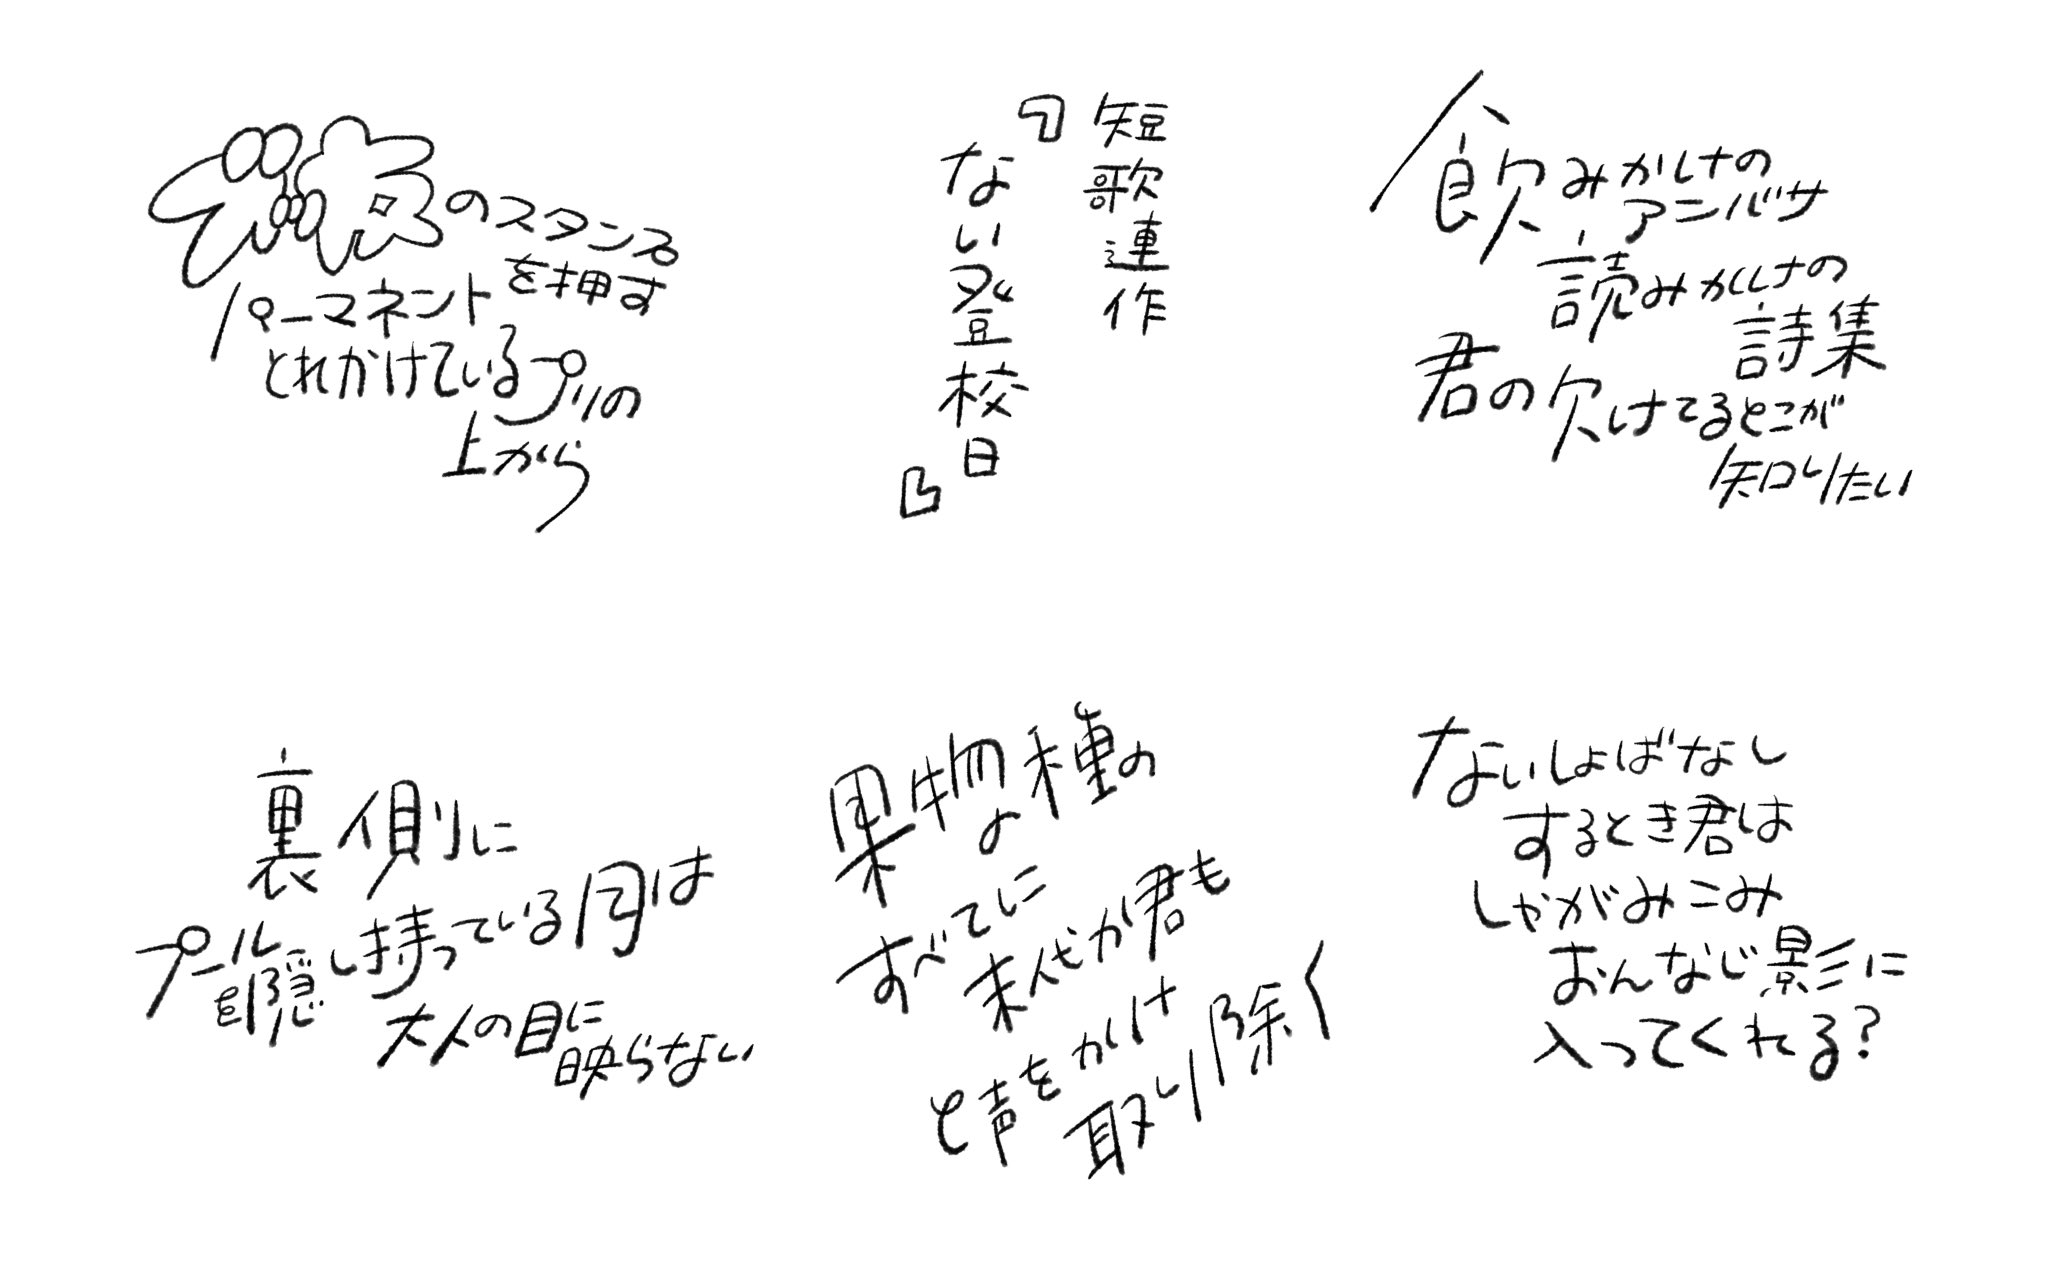 ズッ友のスタンプ
を押す
パーマネント
とれかけているプリの
上から
短歌連作
『ない登校日』
飲みかけの
アンバサ
読みかけの
詩集
君の欠けてるとこが
知りたい
裏側に
プール
隠し持っている月は
大人の目に
映らない
果物の種の
すべてに
末代か君も
と声をかけ
取り除く
ないしょばなし
するとき君は
しゃがみこみ
おんなじ影に
入ってくれる?